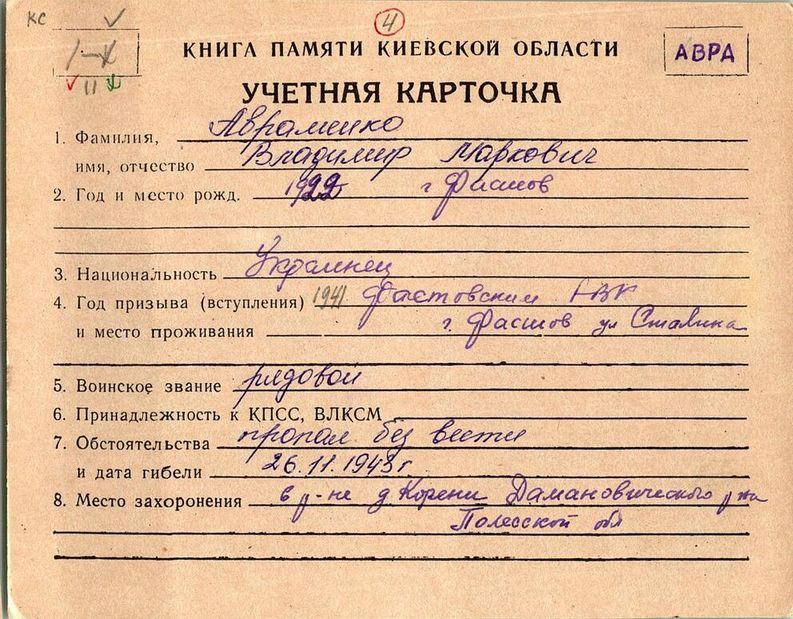 КС
4
КНИГА ПАМЯТИ КИЕВСКОЙ ОБЛАСТИ
АВРА
УЧЕТНАЯ КАРТОЧКА
1. Фамилия, Авраменко
имя, отчество Владимир Маркович
2. Год и место рожд. 1922 г Фастов
3. Национальность Украинец
4. Год призыва (вступления) 1941 Фастовским РВК
и место проживания г. Фастов ул Сталина
5. Воинское звание рядовой
6. Принадлежность к КПСС, ВЛКСМ
7. Обстоятельства пропал без вести
и дата гибели 26.11.1943г.
8. Место захоронения в р-не д Корени Дамановического р-на
Полесской обл